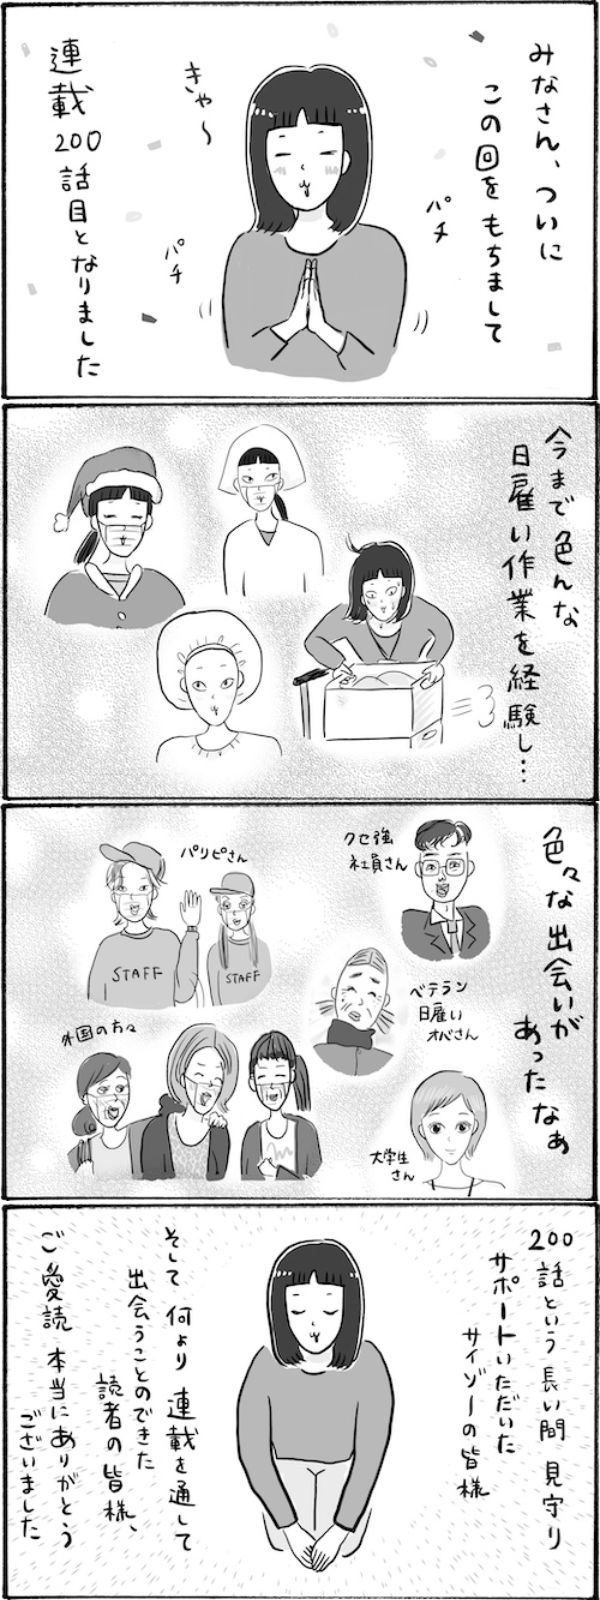 みなさん、ついに
この回をもちまして
連載200話目となりました
きゃ〜
パチ
パチ
今まで色んな
日雇い作業を経験し…
色々な出会いが
あったなぁ
クセ強
社員さん
パリピさん
STAFF
STAFF
ベテラン
日雇い
オバさん
外国の方々
大学生
さん
200話という長い間見守り
サポートいただいた
サイゾーの皆様
そして何より連載を通して
出会うことのできた
読者の皆様、
ご愛読本当にありがとう
ございました